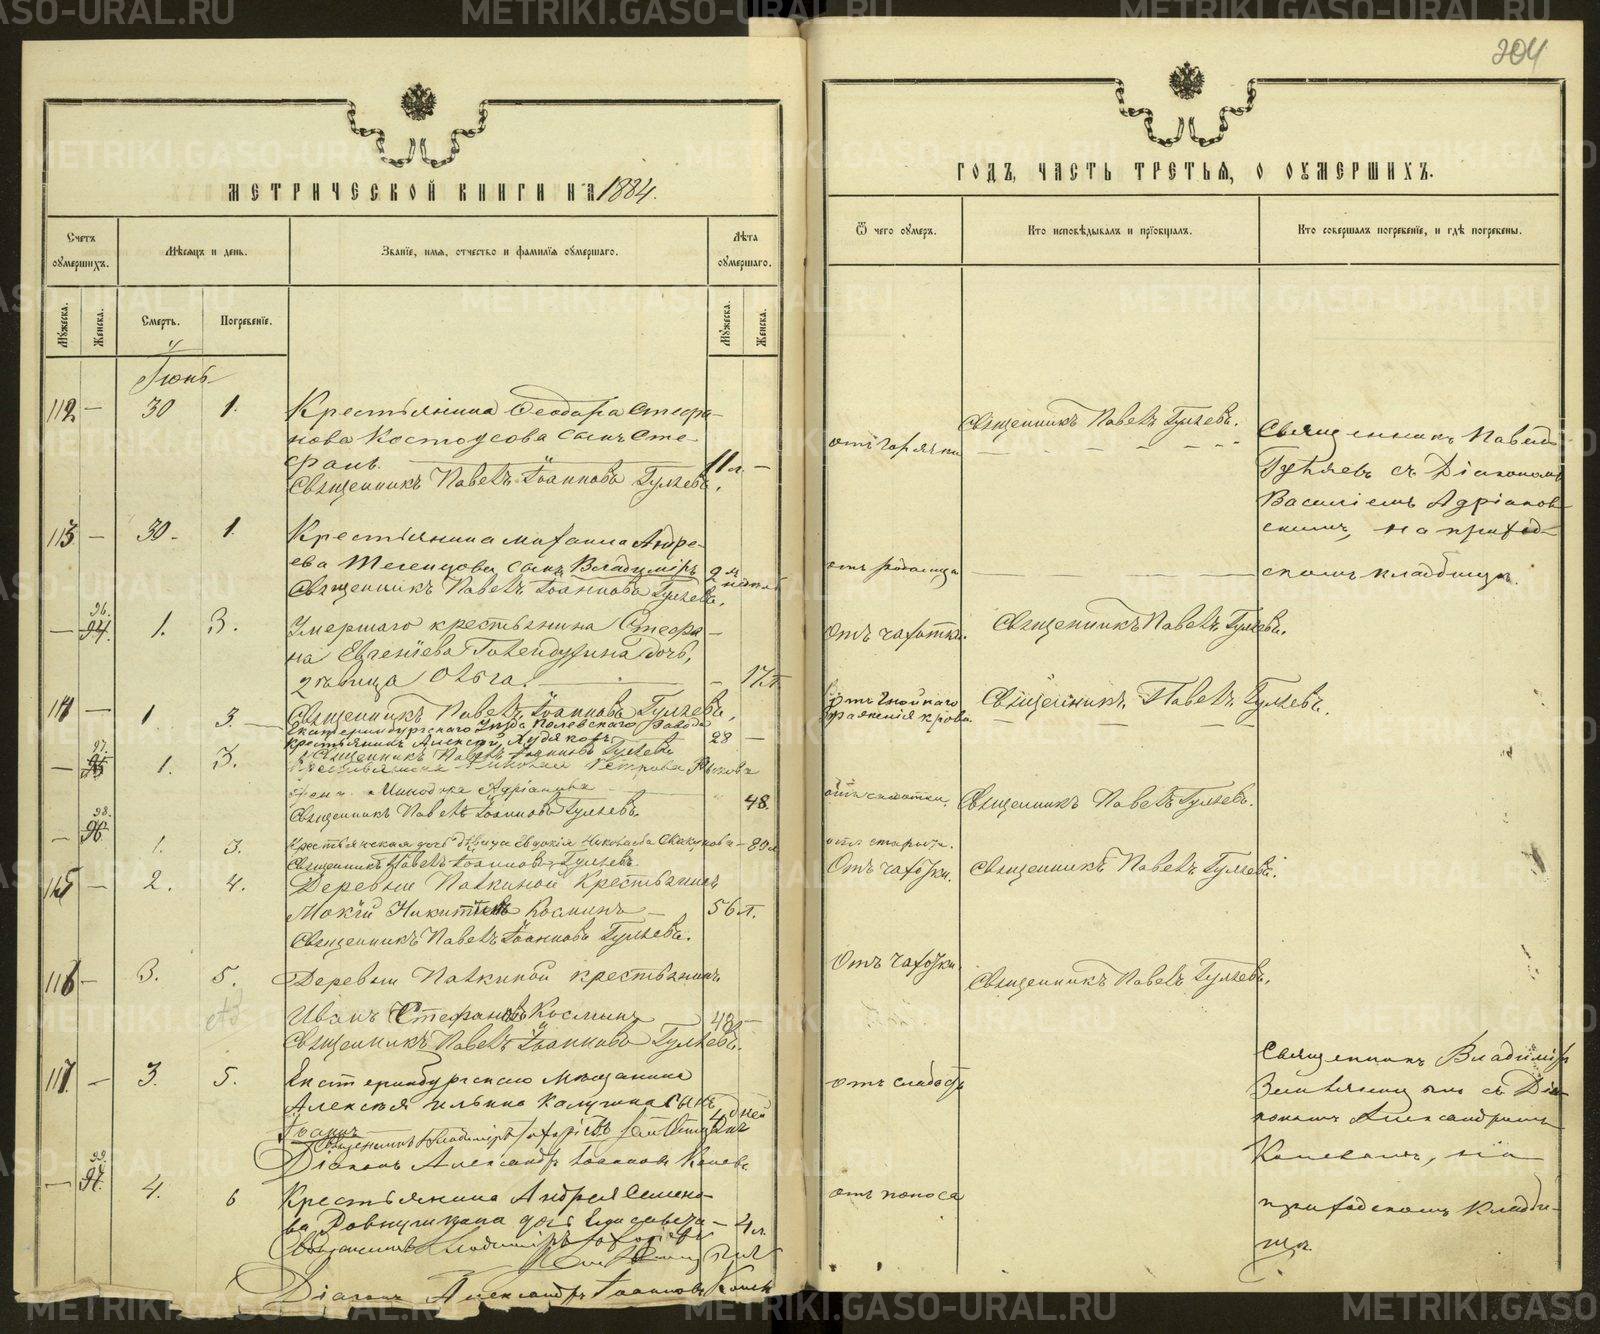 204
МЕТРИЧЕСКОЙ КНИГИ НА 1884.
Счетъ умершихъ.
Мѣсяцъ и день.
Званіе, имя, отчество и фамилія умершаго.
Лѣта умершаго.
Мужеска.
Женска.
Смерть.
Погребеніе.
Мужеска.
Женска.
Іюнь
112 — 30 1. Крестьянина Ѳеодора Стефа-
нова Костоусова сынъ Сте-
фанъ. 11 л. —
Священникъ Павелъ Іоанновъ Гуляевъ.
113 — 30 1. Крестьянина Михаила Андре-
ева сынъ Владиміръ
Священникъ Павелъ Іоанновъ Гуляевъ.
— 96. 94. 1. 3. Умершаго крестьянина Стефа-
на Евгеніева дочь,
дѣвица Ольга. 17 л.
114 — 1 3. Священникъ Павелъ Іоанновъ Гуляевъ.
Екатеринбургскаго Уѣзда Полевскаго завода
крестьянинъ Алексѣй Худяковъ 28 —
— 97. 1. 3. Священникъ Павелъ Іоанновъ Гуляевъ
жена Адріанова 48.
Священникъ Павелъ Іоанновъ Гуляевъ.
— 98. 96. 1. 3. Крестьянская дочь дѣвица Евдокія Николаева — 80 л
Священникъ Павелъ Іоанновъ Гуляевъ.
115 — 2. 4. Деревни Палкиной Крестьянинъ
Мокій Никитинъ Косминъ — 56 л.
Священникъ Павелъ Іоанновъ Гуляевъ.
116 — 3. 5. Деревни Палкиной крестьянинъ
Иванъ Стефановъ Косминъ 48 —
Священникъ Павелъ Іоанновъ Гуляевъ.
117 — 3. 5. Екатеринбургскаго Мѣщанина
Алексѣя Ильина Калугина сынъ
Іоаннъ 4 дней
Священникъ Владиміръ
Діаконъ Александръ Іоанновъ
— 99. 97. 4. 6 Крестьянина Андрея Семено-
ва дочь Елисавета — 4 л.
Священникъ Владиміръ
Діаконъ Александръ Іоанновъ
ГОДЪ, ЧАСТЬ ТРЕТЬЯ, О УМЕРШИХЪ.
Ѿ чего умеръ.
Кто исповѣдывалъ и пріобщалъ.
Кто совершалъ погребеніе, и гдѣ погребены.
отъ горячки
Священникъ Павелъ Гуляевъ.
Священникъ Павелъ
Гуляевъ съ Діакономъ
Василіемъ Адріанов-
скимъ, на приход-
скомъ кладбищѣ.
отъ родимца
Отъ чахотки.
Священникъ Павелъ Гуляевъ.
Отъ гнойнаго
зараженія крови
Священникъ Павелъ Гуляевъ.
отъ чахотки.
Священникъ Павелъ Гуляевъ.
отъ старости.
Отъ чахотки.
Священникъ Павелъ Гуляевъ.
Отъ чахотки.
Священникъ Павелъ Гуляевъ.
отъ слабости
Священникъ Владиміръ
съ Діа-
кономъ Александромъ
на
отъ поноса
приходскомъ кладби-
щѣ.
METRIKI.GASO-URAL.RU